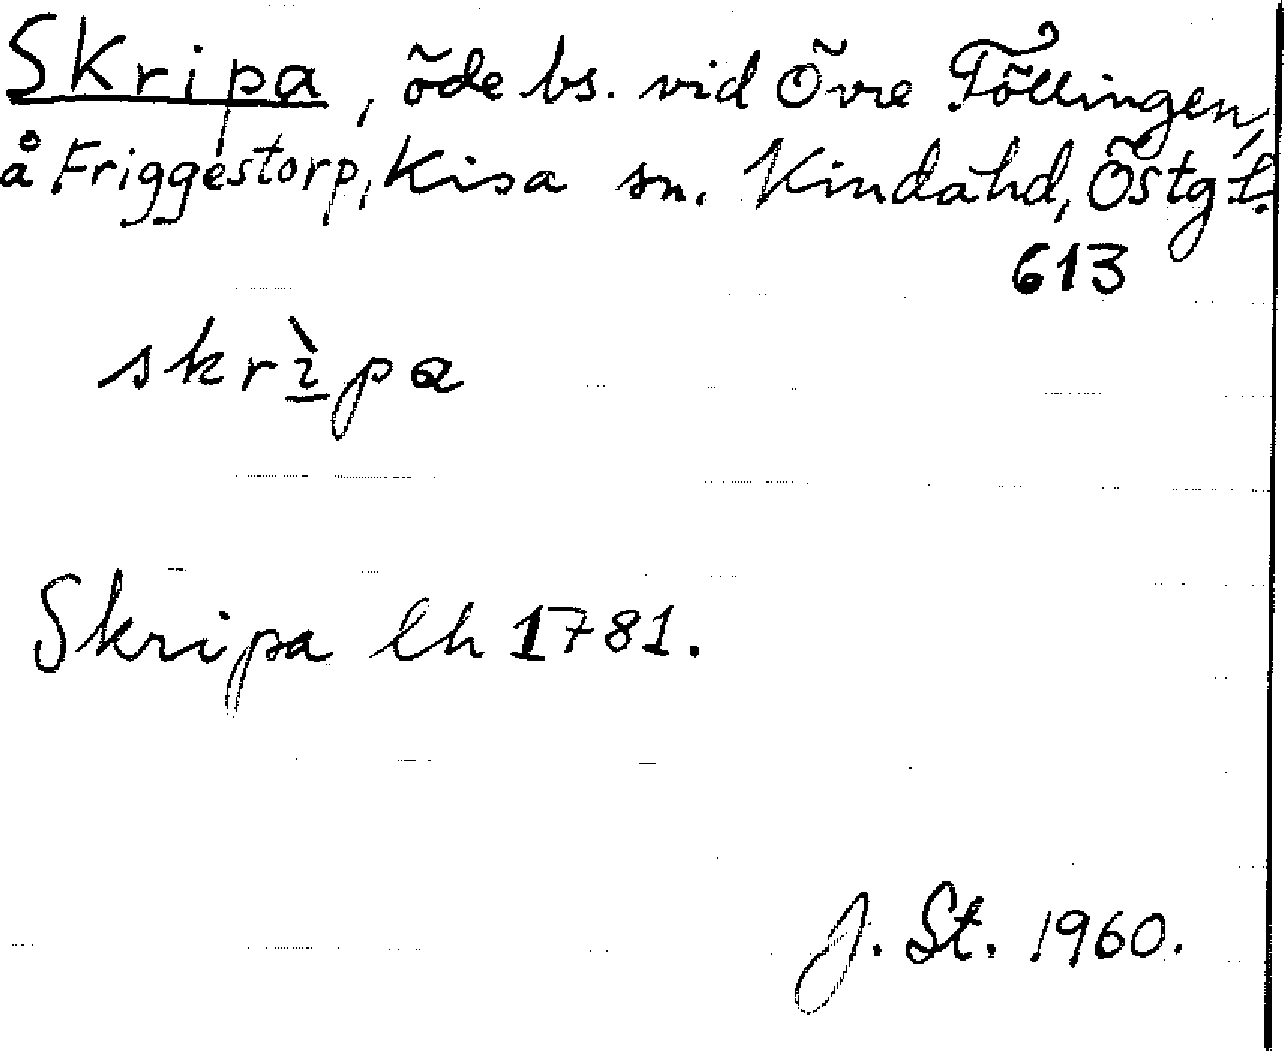 Skripa, öde bs. vid Övre Föllingen,
å Friggestorp, Kisa sn. Kinda hd, Östg l.
613
skrìpa
Skripa lh 1781.
J. St. 1960.